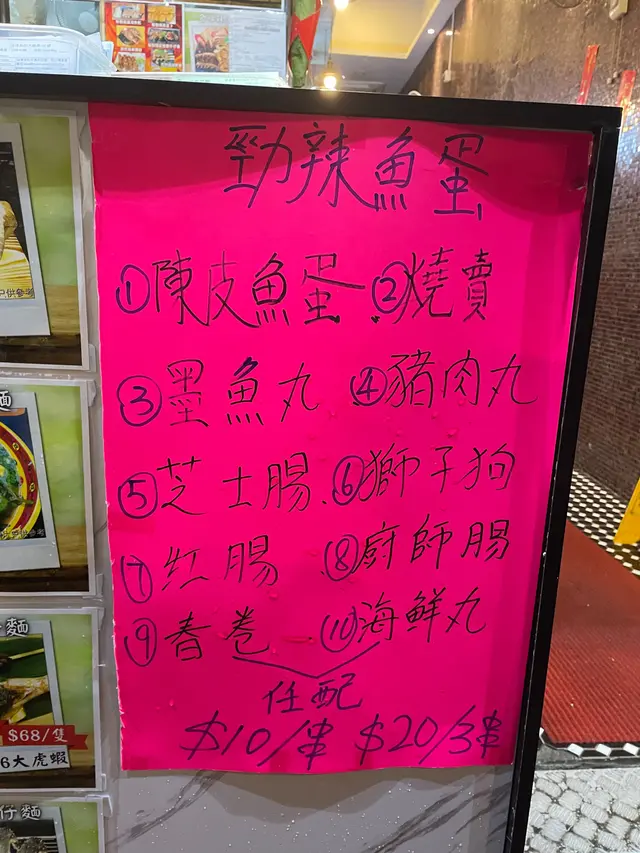 勁辣魚蛋
①陳皮魚蛋 ②燒賣
③墨魚丸 ④豬肉丸
⑤芝士腸 ⑥獅子狗
⑦紅腸 ⑧廚師腸
⑨春卷 ⑩海鮮丸
任配
$10/串 $20/3串
供參考
麵
供參考
麵
$68/隻
6大虎蝦
仔麵